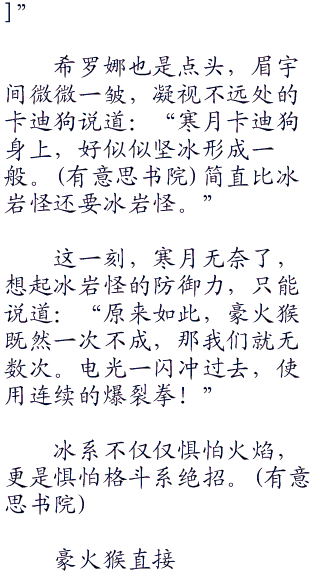 ]”
希罗娜也是点头，眉宇
间微微一皱，凝视不远处的
卡迪狗说道：“寒月卡迪狗
身上，好似似坚冰形成一
般。(有意思书院)简直比冰
岩怪还要冰岩怪。”
这一刻，寒月无奈了，
想起冰岩怪的防御力，只能
说道：“原来如此，豪火猴
既然一次不成，那我们就无
数次。电光一闪冲过去，使
用连续的爆裂拳！”
冰系不仅仅惧怕火焰，
更是惧怕格斗系绝招。(有意
思书院)
豪火猴直接